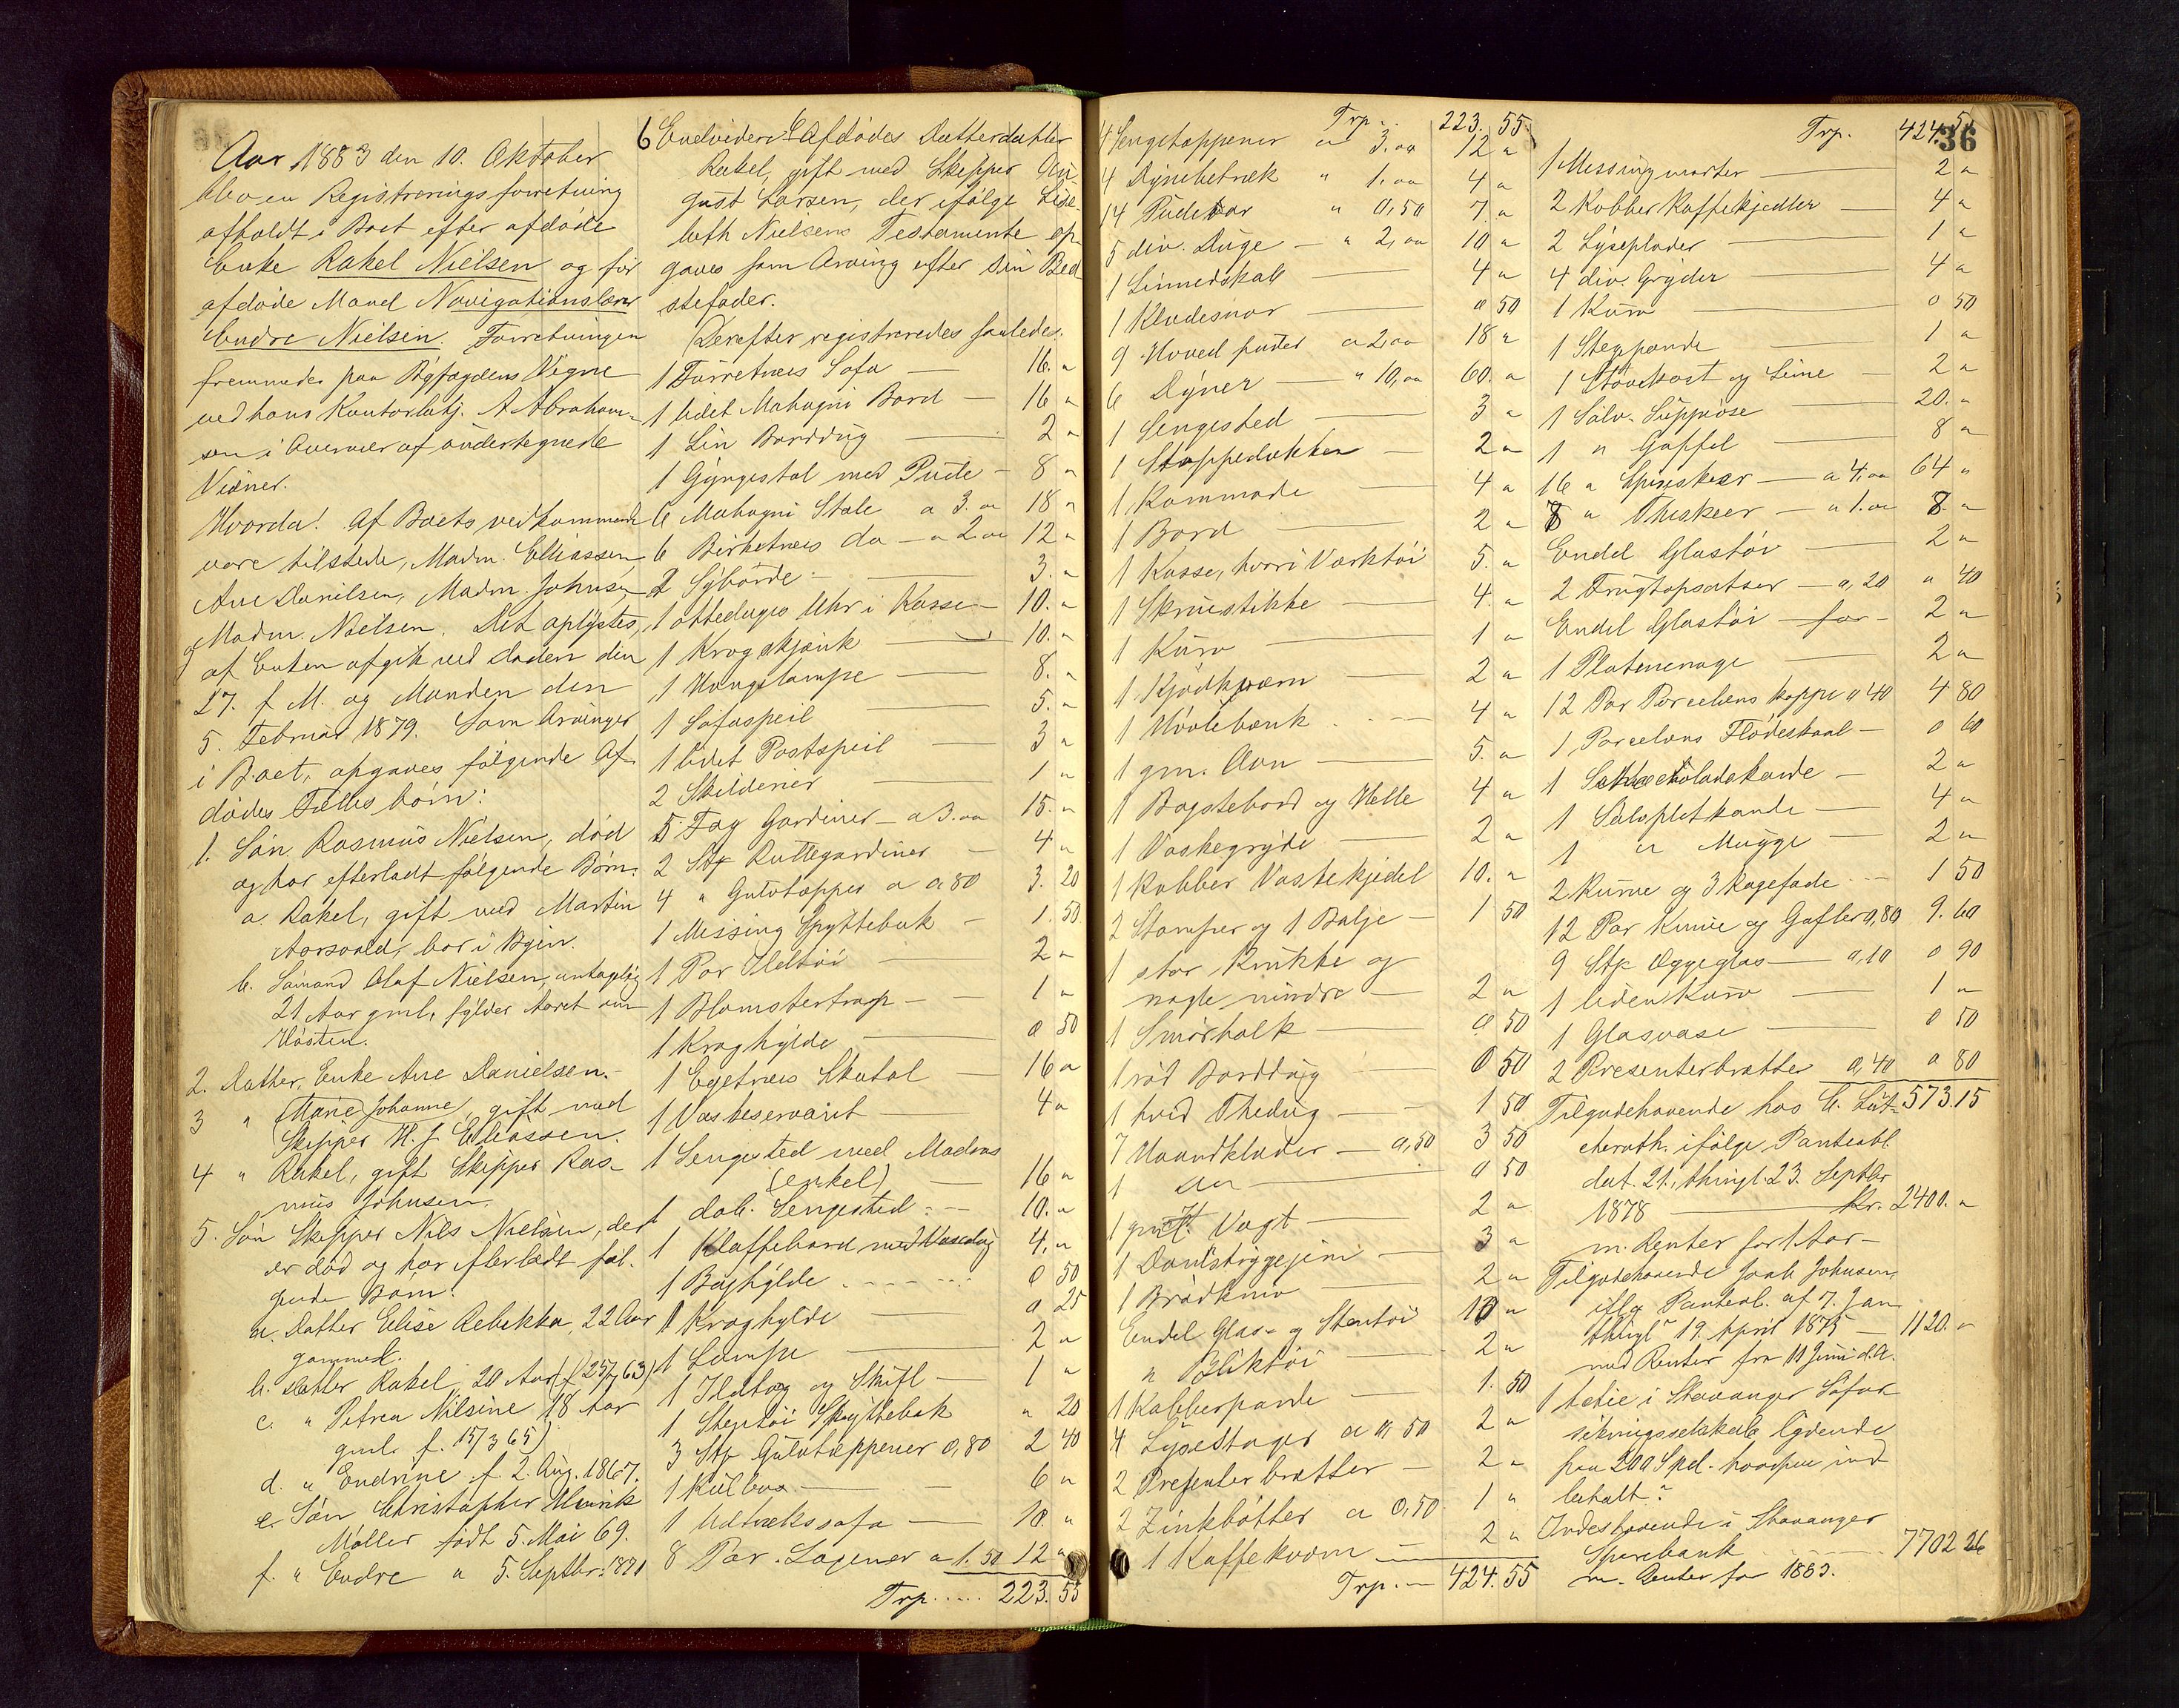 Aar 1883 den 10. Oktober
blev en Registreringsforretning
afholdt i Boet efter afdöde
Enke Rakel Nielsen og før
afdöde Mand Navigationslærer
Endre Nielsen. Forretningen
fremmedes paa Byfogdens Vegne
ved hans Kontorfuldm. A Abraham-
sen i Overvær af undertegnede
Vidner.
Hvorda! Af Boets vedkommende
vare tilstede, Madm. Eliassen,
Ane Danielsen, Madm. Johnsen
og Madm. Nielsen. Det oplystes,
at Enken afgik ved Døden den
27. f. M. og Manden den
5. Februar 1879. Som Arvinger
i Boet, opgaves følgende Af-
dödes Fælles børn:
1. Sön Rasmus Nielsen, död
og har efterladt følgende Børn.
a. Rakel, gift med Martin
Aarsvold, bor i Byen.
b. Sömand Olaf Nielsen, antagelig
21 Aar gml, fylder Aaret om
Høsten.
2. Datter, Enke Ane Danielsen.
3 " Marie Johanne, gift med
Skipper H. J. Eliassen.
4 " Rakel, gift Skipper Ras-
mus Johnsen.
5. Sön Skipper Nils Nielsen, der
er död og har efterladt föl-
gende Börn:
a. Datter Elise Rebekka, 22 Aar
gammel.
b. Datter Rakel, 20 Aar (f 25/7 63)
c. " Petrea Nilsine 18 Aar
gml. f. 15/3 65)
d. " Endrine f. 2. Aug. 1867.
e. Sön Christopher Henrik
Møller født 5. Mai 69.
f. " Endre " 5. Septbr. 1871
6 Endvidere Afdödes Datterdatter
Rakel, gift med Skipper Au-
gust Larsen, der ifölge Lise-
beth Nielsens Testamente op-
gaves som Arving efter sin Bed-
stefader.
Derefter registreredes saaledes:
1 Furretræs Sofa — 16. "
1 lidet Mahogni Bord — 16 "
1 Lin Borddug 2 "
1 Gyngestol med Pude — 8 "
6 Mahogni Stole a 3. oo 18 "
6 Birketræs do — a 2 oo 12 "
2 Syborde — 3. "
1 ottedages Uhr i Kasse — 10. "
1 Krogskjænk — 10. "
1 Hængelampe — 8. "
1 Sofaspeil — 5. "
1 lidet Postspeil — 3 "
2 Skilderier — 1 "
5 Fag Gardiner — a 3. oo 15. "
2 Stk Rullegardiner — 4 "
4 " Gulvtæpper a 0,80 3. 20
1 Messing Spyttebak — 1. 50
1 Par Ildtöi — 2 "
1 Blomstertrap — 1 "
1 Kroghylde — 0 50
1 Egetræs Skatol — 16 "
1 Vaskeservant 4 "
1 Sengested med Madras
(enkel) — 16 "
1 dob. Sengested — 10. "
1 Klaffebord med Voxdug 4. "
1 Boghylde 0 50
1 Kroghylde — 0 25
1 Lampe — 2 "
1 Ildtog og Skufl — 1 "
1 Stentöi Spyttebak " 20
3 Stk Gulvtæppener 0,80 2 40
1 Kulbox — 6 "
1 Udtrækssofa — 10. "
8 Par. Lagener a 1. 50 12 "
Trp. .... 223. 55
Trp. .. 223. 55.
4 Sengetæppener a 3. oo 12 "
4 Dynebetræk " 1. oo 4 "
14 Pudevar " 0,50 7. "
5 div. Duge — " 2, oo 10 "
1 Linnedskab — 4 "
1 Kludesnor — 0 50
9 Hoved puder a 2,oo 18 "
6 Dyner — " 10,oo 60. "
1 Sengested — 3 "
1 Stoppedukken — 2 "
1 Kommode — 4 "
1 Bord — 2 "
1 Kasse, hvori Værktöi 5. "
1 Skruestikke — 4. "
1 Kurv — 1 "
1 Kjödkværn — 2 "
1 Hövlebænk — 4 "
1 gm. Ovn — 5. "
1 Bagstebord og Helle 4 "
1 Vaskegryde — 2 "
1 Kobber Vaskekjedel 10. "
2 Stamper og 1 Balje — 1 50
1 stor Krukke og
nogle mindre — 2 "
1 Smörholk — 0 50
1 röd Borddug — 0 50
1 hvid Thedug — 1 50
7 Haandklæder — 0,50 3 50
1 do — 0 50
1 gml. Vægt — 2 "
1 Dampstrygejern — 3 "
1 Brödkniv — 2 "
Endel Glas- og Stentöi 10 "
" Bliktöi — 2 "
1 Kobberpande — 1. 50
4 Lysestager a 0,50 2 "
2 Presenterbrætter — 2 "
2 Zinkbötter a 0,50 1 "
1 Kaffekværn — 2 "
Trp. — 424. 55
36
Trp. 424. 55
1 Messingmorter — 2 "
2 Kobber Kaffekjedler — 4 "
2 Lyseplader — 1 "
4 div. Gryder 4 "
1 Kurv — 0 50
1 Stegepande — 1 "
1 Støvekost og Lime — 2 "
1 Sölv- Suppeöse — 20. "
1 " Gaffel — 8 "
16 " Spiseskeer — a 4,oo 64 "
8 " Theskeer — a 1.oo 8. "
Endel Glastöi — 2 "
2 Frugtopsatser — a, 20 " 40
Endel Glastöi — for — 2 "
1 Platmenage — 2 "
12 Par Porcelens Kopper a 40 4 80
1 Porcelæns Flödeskaal — 0 60
1 Chocoladekande — 2 "
1 Sölvpletkande — 4 "
1 " Mugge — 2 "
2 Kurve og 3 Kagefade — 1 50
12 Par Knive og Gafler 0,80 9. 60
9 Stk Æggeglas — 0,10 0 90
1 liden Kurv — 1 "
1 Glasvase — 0 50
2 Presenterbrætte 0,40 0 80
Tilgodehavende hos C. Lüt- 573.15
cheroth. ifölge Panteobl.
dat. 21., thingl. 23. Septbr
1878 — Kr. 2400. "
m. Renter for 1 Aar —
Tilgodehavende Jonb Johnsen
iflg Panteobl. af 7. Jan
thingl 19. April 1875 — 1120. "
med Renter fra 11 Juni d.A.
1 Actie i Stavanger Söfor-
sikringsselskab lydende
paa 200 Spd. hvorpaa ind-
betalt?
Indestaaende i Stavanger
Sparebank — 7702 26
m. Renter for 1883.